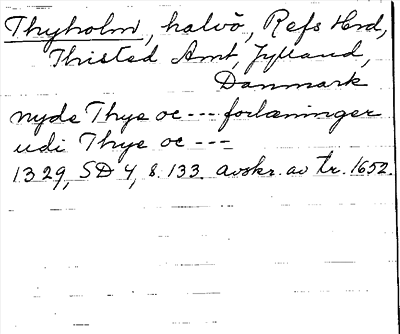 Thyholm, halvö, Refs Hrd,
Thisted Amt, Jylland,
Danmark
nyde Thye oc --- forlæninger
udi Thye oc ---
1329, SD 4, s. 133. avskr. av tr. 1652.